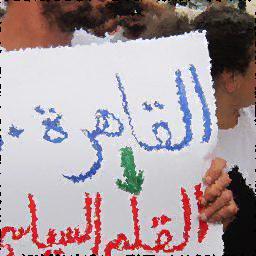 القاهرة
القلم السياس